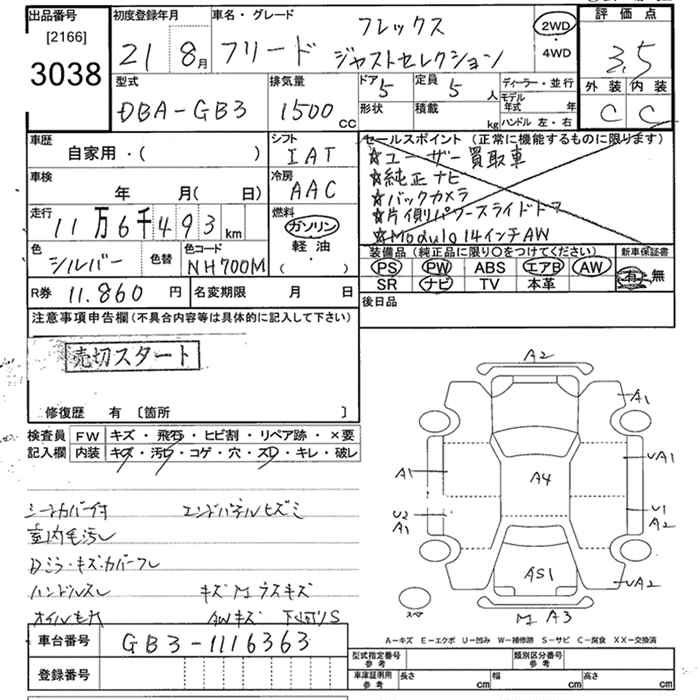 出品番号 初度登録年月 車名・グレード 評価点
[2166] フレックス 2WD
3038 21 8月 フリード ジャストセレクション ・ 4WD 3.5
型式 排気量 ドア 定員 ディーラー・並行 外装 内装
DBA-GB3 1500cc 5 5人 モデル年式 年 C C
形状 積載 kg ハンドル 左・右
車歴 シフト セールスポイント (正常に機能するものに限ります)
自家用・( ) IAT ☆ユーザー買取車
車検 冷房 ☆純正ナビ
年 月( 日) AAC ☆バックカメラ
走行 燃料 ☆片側パワースライドドア
11万6千493km ガソリン ☆Modulo 14インチAW
色 色替 色コード 軽油 装備品 (純正品に限り○をつけてください) 新車保証書
シルバー NH700M ( ・ ) PS PW ABS エアB AW 有・無
R券 11.860円 名変期限 月 日 SR ナビ TV 本革
後日品
注意事項申告欄 (不具合内容等は具体的に記入して下さい)
売切スタート
修復歴 有 〔箇所 〕
検査員 FW キズ・飛石・ヒビ割・リペア跡・×要
記入欄 内装 キズ・汚レ・コゲ・穴・スレ・キレ・破レ
シートカバー付 エンドパネルヒズミ
室内毛汚レ
Dミラーキズ・カバーフレ
ハンドルスレ キズ M ラスキズ
オイルモレ AWキズ 下回りS
A2
A1
A1 A4 UA1
U2 U1
A1 A2
AS1 UA2
M A3
A-キズ E-エクボ U-凹み W-補修跡 S-サビ C-腐食 XX-交換済
車台番号 GB3-1116363
登録番号
型式指定番号 参考 類別区分番号 参考
車庫証明用 参考 長さ cm 幅 cm 高さ cm